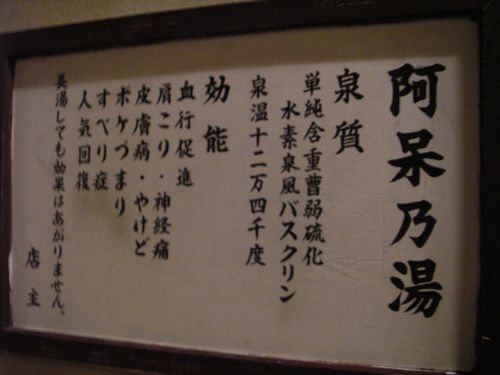 阿呆乃湯
泉質
単純含重曹弱硫化
水素泉風バスクリン
泉温十二万四千度
効能
血行促進
肩こり・神経痛
皮膚病・やけど
ボケづまり
すべり症
人気回復
長湯しても効果はあがりません。
店主